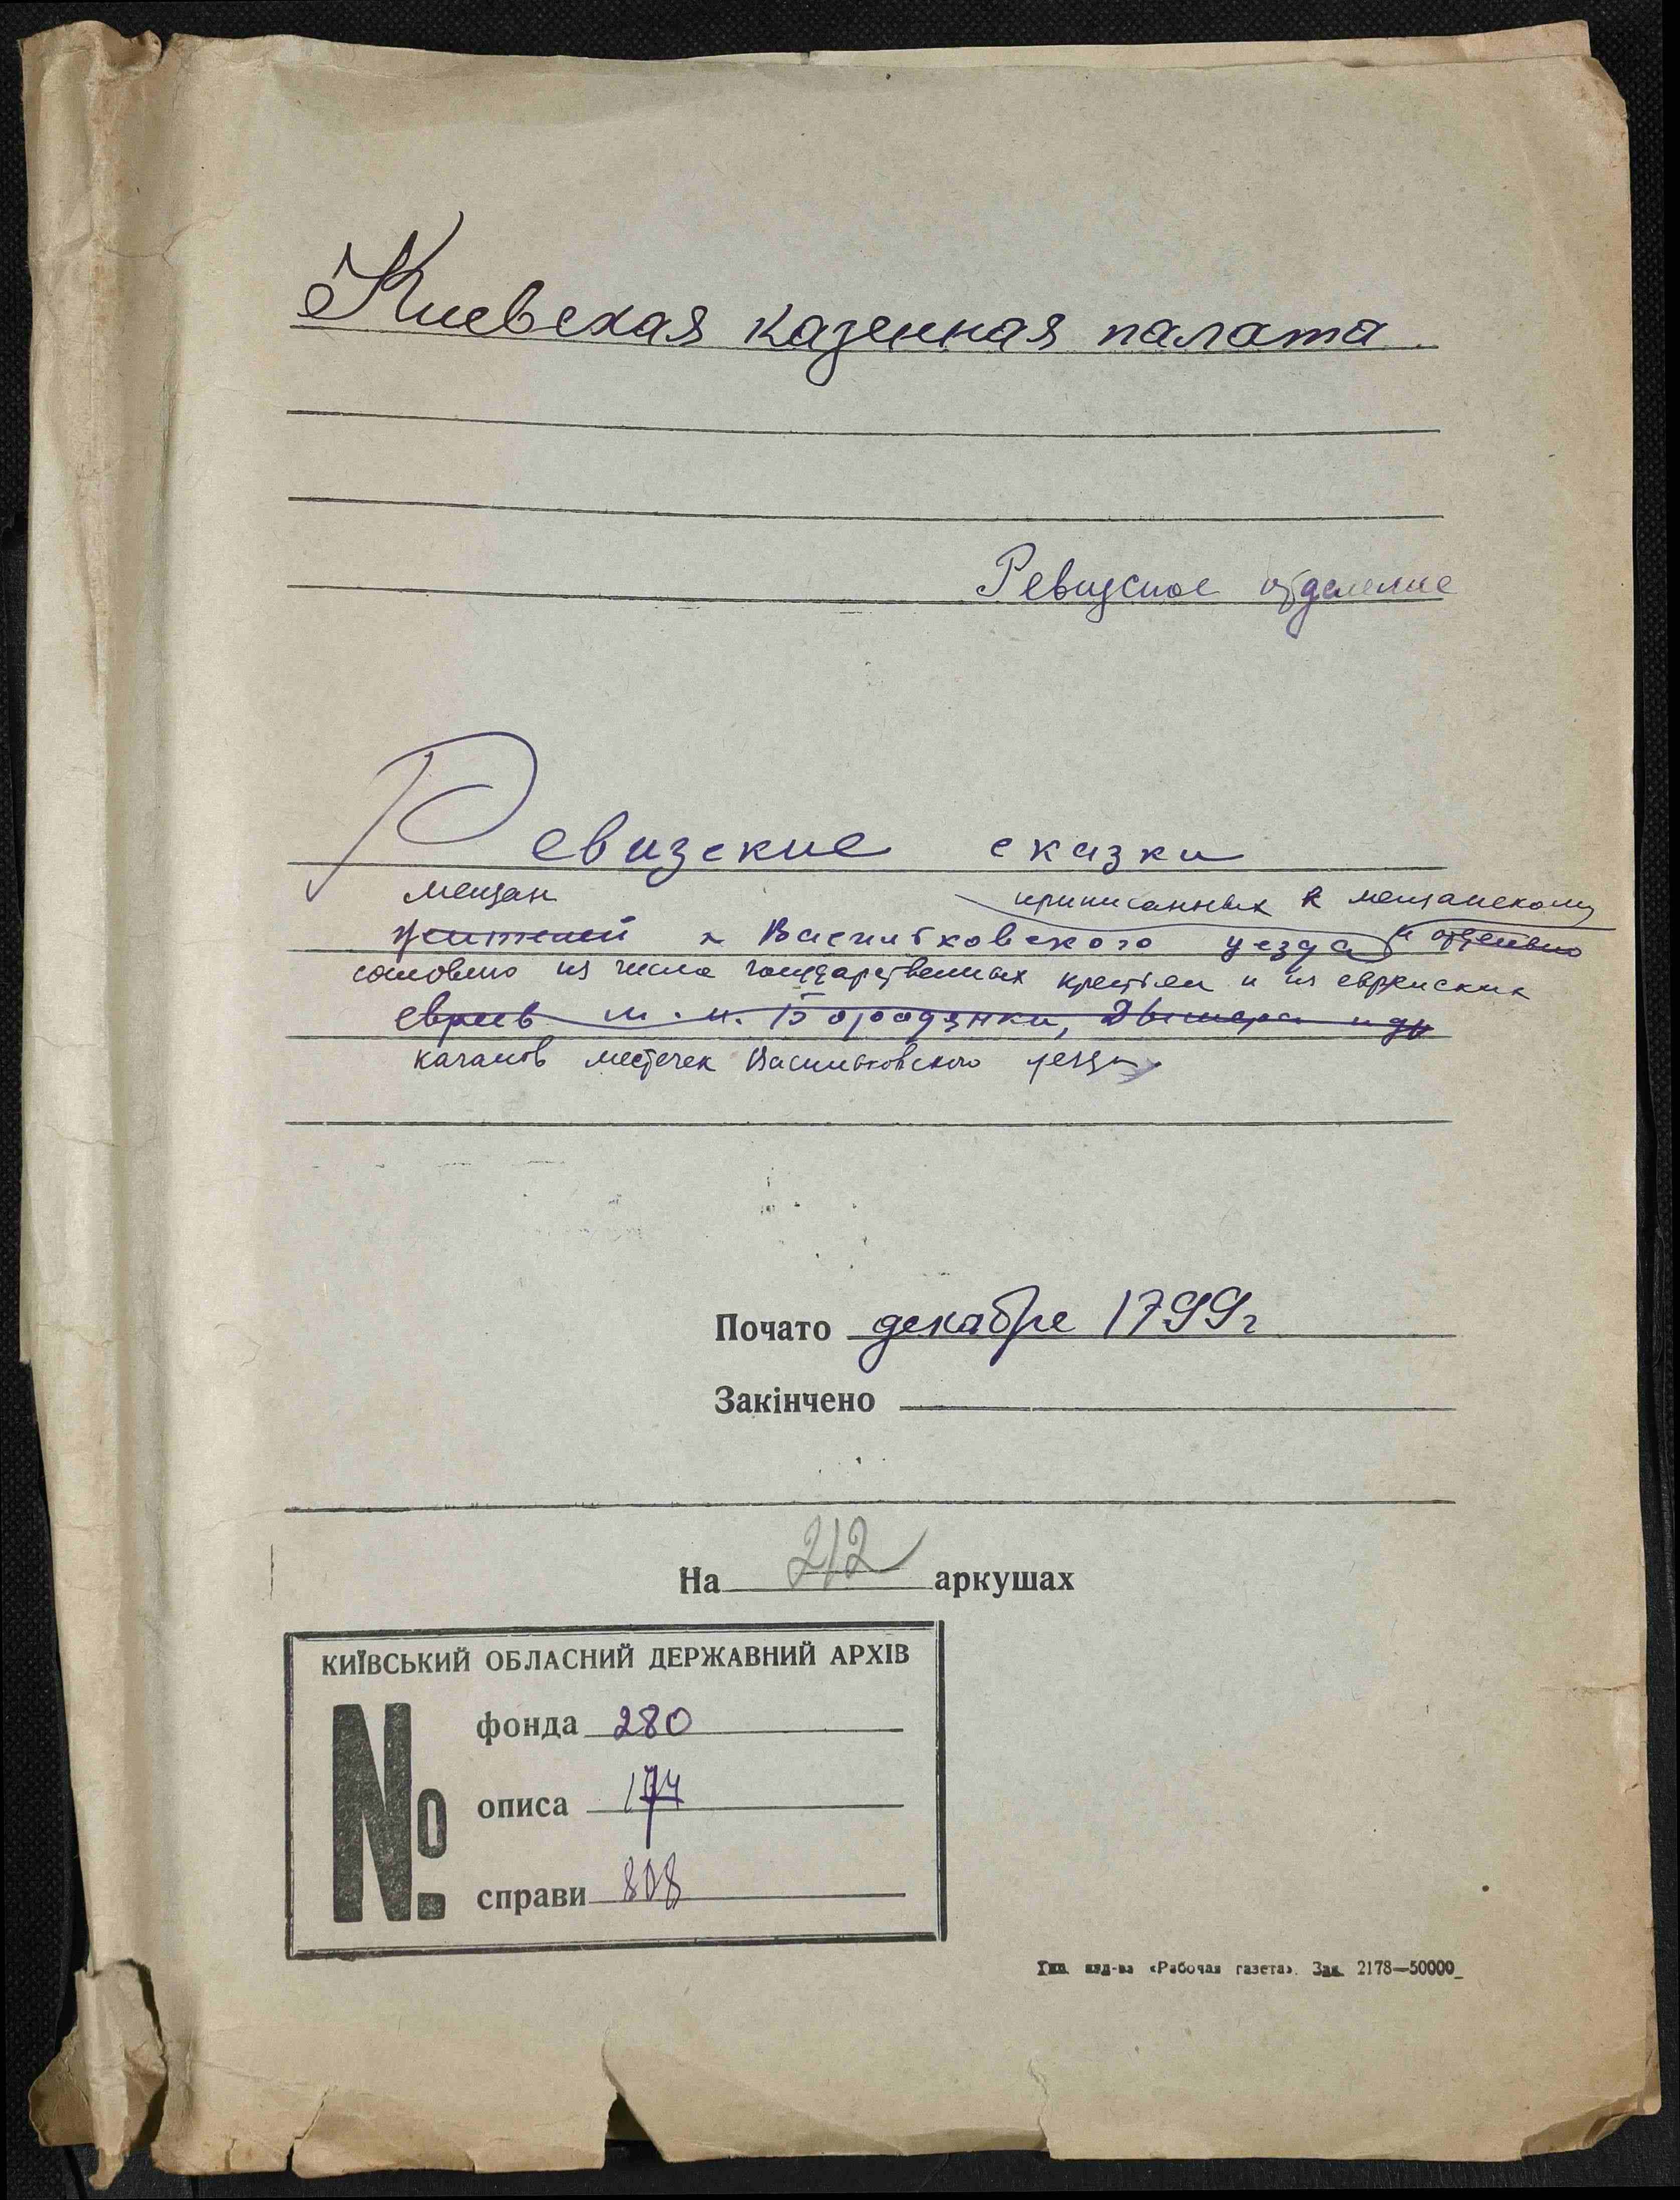 Киевская казенная палата
Ревизское отделение
Ревизские сказки
мещан приписанных к мещанскому
жителей г. Васильковского уезда и отдельно
сословию из числа государственных крестьян и из еврейских
евреев м. м. Бородянки, и др
кагалов местечек Васильковского уезда
Почато декабре 1799г
Закінчено
На 212 аркушах
КИЇВСЬКИЙ ОБЛАСНИЙ ДЕРЖАВНИЙ АРХІВ
№
фонда 280
описа 174
справи 808
Тип. изд-ва «Рабочая газета». Зак. 2178—50000